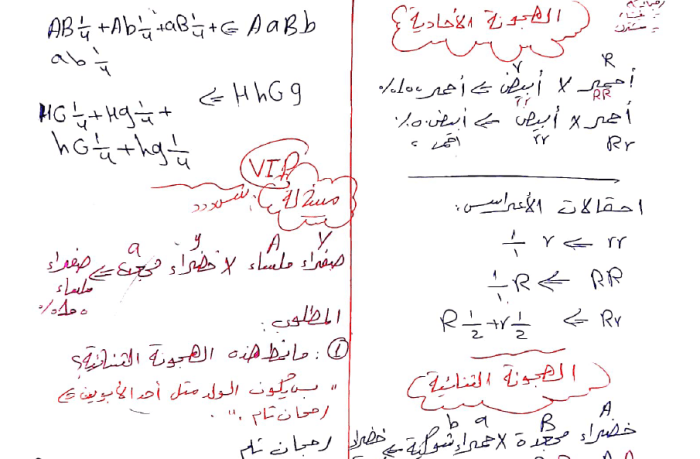 الهجونة الأحادية
R r
أحمر X أبيض ⇐ أحمر 100%
RR rr
أحمر X أبيض ⇐ أبيض 50%
Rr rr
احتمالات الأعراس:
rr ⇒ r 1/1
RR ⇒ R 1/1
Rr ⇒ R 1/2 + r 1/2
الهجونة الثنائية
A B a b
خضراء مجعدة X حمراء شوكية ⇐ خضراء
AaBb ⇒ AB 1/4 + Ab 1/4 + aB 1/4 +
ab 1/4
HhGg ⇒
HG 1/4 + Hg 1/4 +
hG 1/4 + hg 1/4
VIP
مسألة:
Y A y a
صفراء ملساء X خضراء مجعدة ⇐ صفراء
ملساء
100%
المطلوب:
1: ما نمط هذه الهجونة الثنائية؟
" بس يكون الولد مثل أحد الأبوين ⇐
رجحان تام ".
رجحان تام